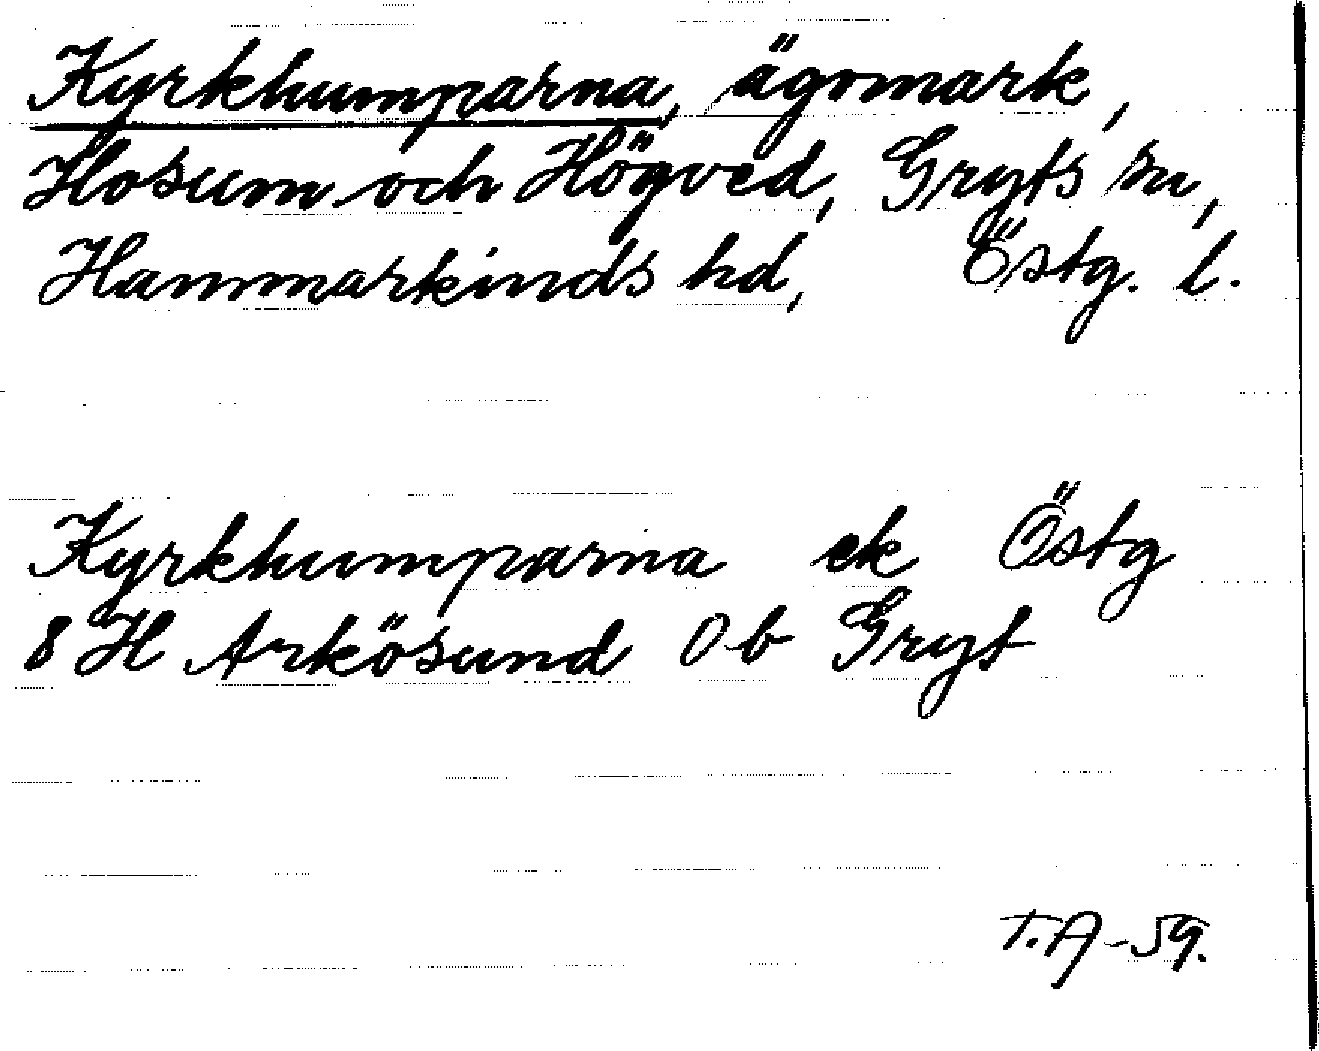 Kyrkhumparna, ägomark,
Hosum och Högved, Gryts sn,
Hammarkinds hd, Östg. l.
Kyrkhumparna ek Östg
8 H Arkösund 0 b Gryt
T.A-59.